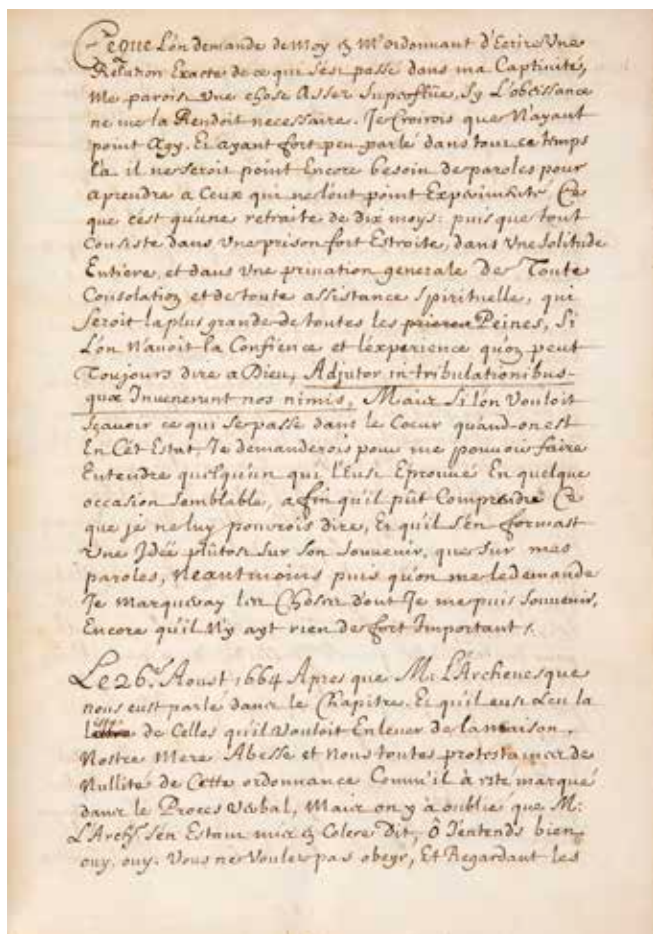 Ce que L'on demande de Moy & M'ordonnant d'Ecrire Une
Relation Exacte de ce qui s'est passé dans ma Captivité,
Me parois Une chose Assez Superflüe, Sy L'obeissance
ne me la Rendoit necessaire. Je Croirois que N'ayant
point Agy. Et ayant fort peu parlé dans tout ce temps
la il ne seroit point Encore besoin de paroles pour
aprendre a Ceux qui ne l'ont point Experimenté Ce
que c'est qu'une retraite de dix moys: puis que tout
Consiste dans Une prison fort Estroite, dans Une Solitude
Entiere, et dans Une privation generale de Toute
Consolation et de toute assistance Spirituelle, qui
Seroit la plus grande de toutes les Peines, Si
L'on N'avoit la Confience et l'experience qu'on peut
Toujours dire a Dieu, Adjutor in tribulationibus
quæ Invenerunt nos nimis, Mais Si l'on Vouloit
sçavoir ce qui se passe dans le Coeur quand on est
En Cét Estat, Je demanderois pour me pouvoir faire
Entendre quelqu'un qui l'Eust Eprouvé En quelque
occasion Semblable, afin qu'il pût Comprendre Ce
que je ne luy pourrois dire, Et qu'il s'en formast
Une Idée plûtost sur son souvenir, que sur mes
paroles, Neantmoins puis qu'on me le demande
Je marqueray les Choses dont Je me puis Souvenir,
Encore qu'il N'y ayt rien de fort Important /.
Le 26.e Aoust 1664 Apres que M. L'Archevesque
nous eust parlé dans le Chapitre. Et qu'il eust Leu la
liste de Celles qu'il Vouloit Enlever de la maison,
Nostre Mere Abesse et Nous toutes protestasmes de
Nullité de Cette ordonnance Comm'il à esté marqué
dans le Proces Verbal, Mais on y à oublié que M:
L'Arch. s'en Estant mis & Colere Dit, Ô J'entends bien
ouy, ouy. Vous ne Voulez pas obeyr, Et Regardant les